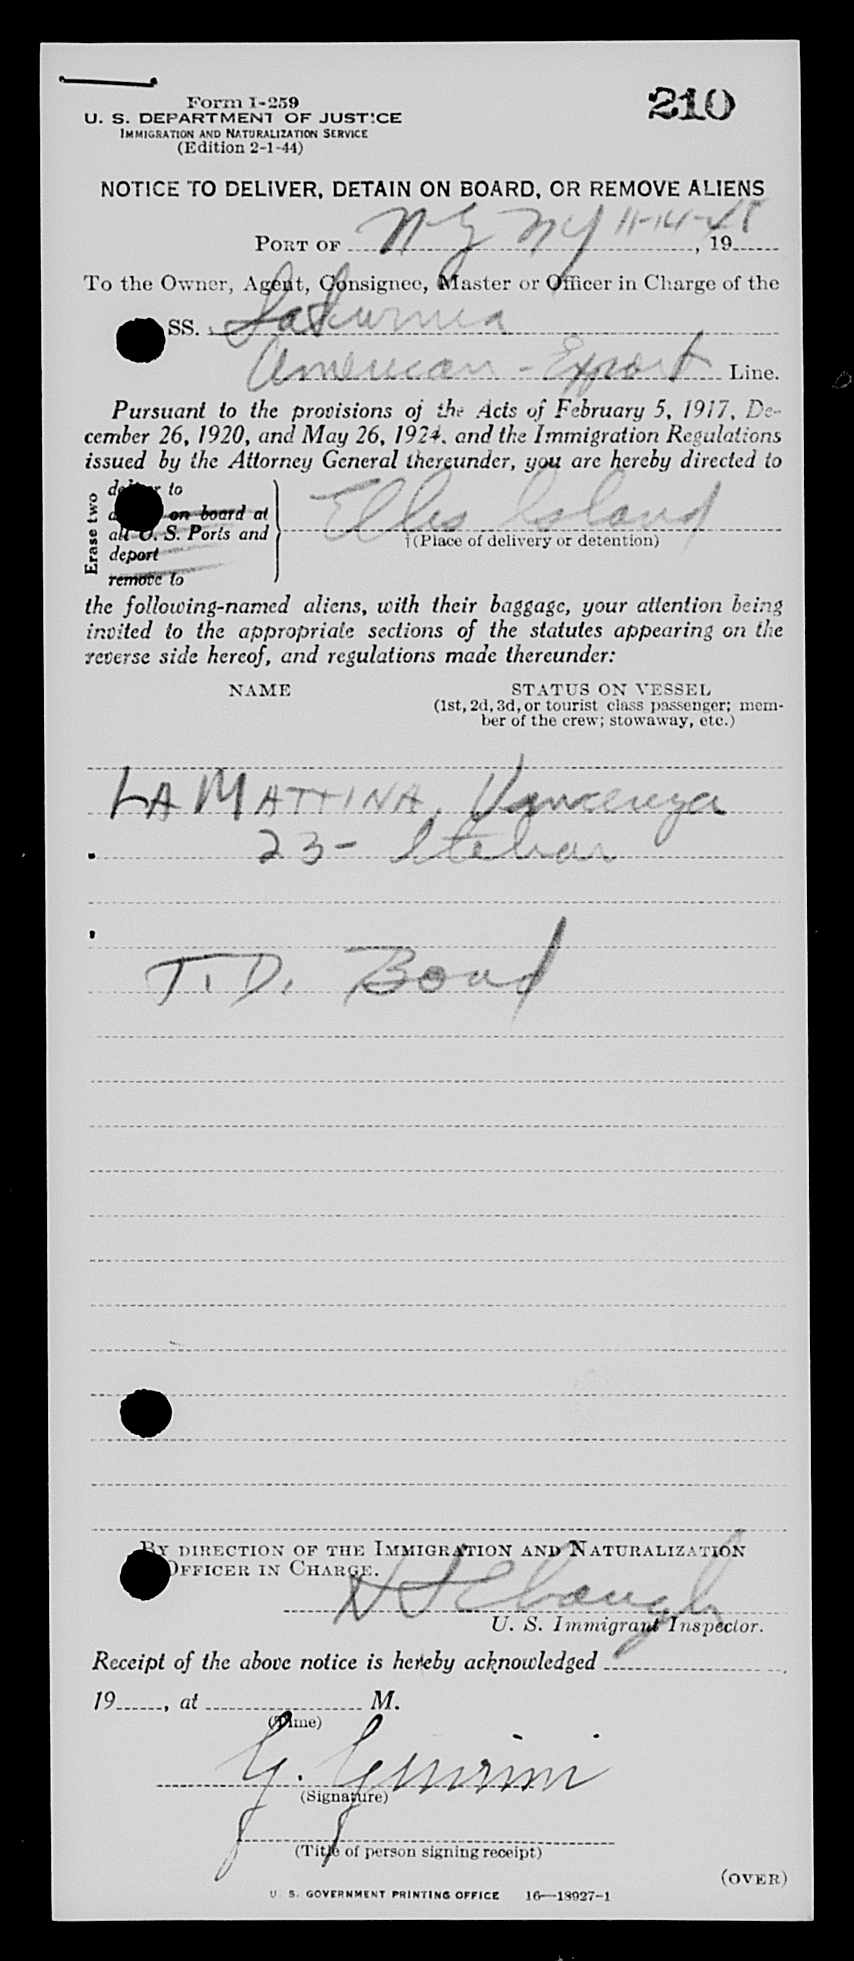 Form I-259
210
U. S. DEPARTMENT OF JUSTICE
IMMIGRATION AND NATURALIZATION SERVICE
(Edition 2-1-44)
NOTICE TO DELIVER, DETAIN ON BOARD, OR REMOVE ALIENS
PORT OF N Y N Y 11-14-48, 19
To the Owner, Agent, Consignee, Master or Officer in Charge of the
SS. Saturnia
American - Export Line.
Pursuant to the provisions of the Acts of February 5, 1917, De-
cember 26, 1920, and May 26, 1924, and the Immigration Regulations
issued by the Attorney General thereunder, you are hereby directed to
Erase two
deliver to
on board at
all U. S. Ports and
deport
remove to
Ellis Island
†(Place of delivery or detention)
the following-named aliens, with their baggage, your attention being
invited to the appropriate sections of the statutes appearing on the
reverse side hereof, and regulations made thereunder:
NAME STATUS ON VESSEL
(1st, 2d, 3d, or tourist class passenger; mem-
ber of the crew; stowaway, etc.)
LA MATTINA, Vincenza
23- Italian
T. D. Bond
BY DIRECTION OF THE IMMIGRATION AND NATURALIZATION
OFFICER IN CHARGE.
U. S. Immigrant Inspector.
Receipt of the above notice is hereby acknowledged
19, at M.
(Time)
G.
(Signature)
(Title of person signing receipt)
(OVER)
U. S. GOVERNMENT PRINTING OFFICE 16—18927-1